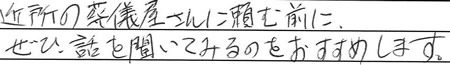 近所の葬儀屋さんに頼む前に、
ぜひ、話を聞いてみるのをおすすめします。